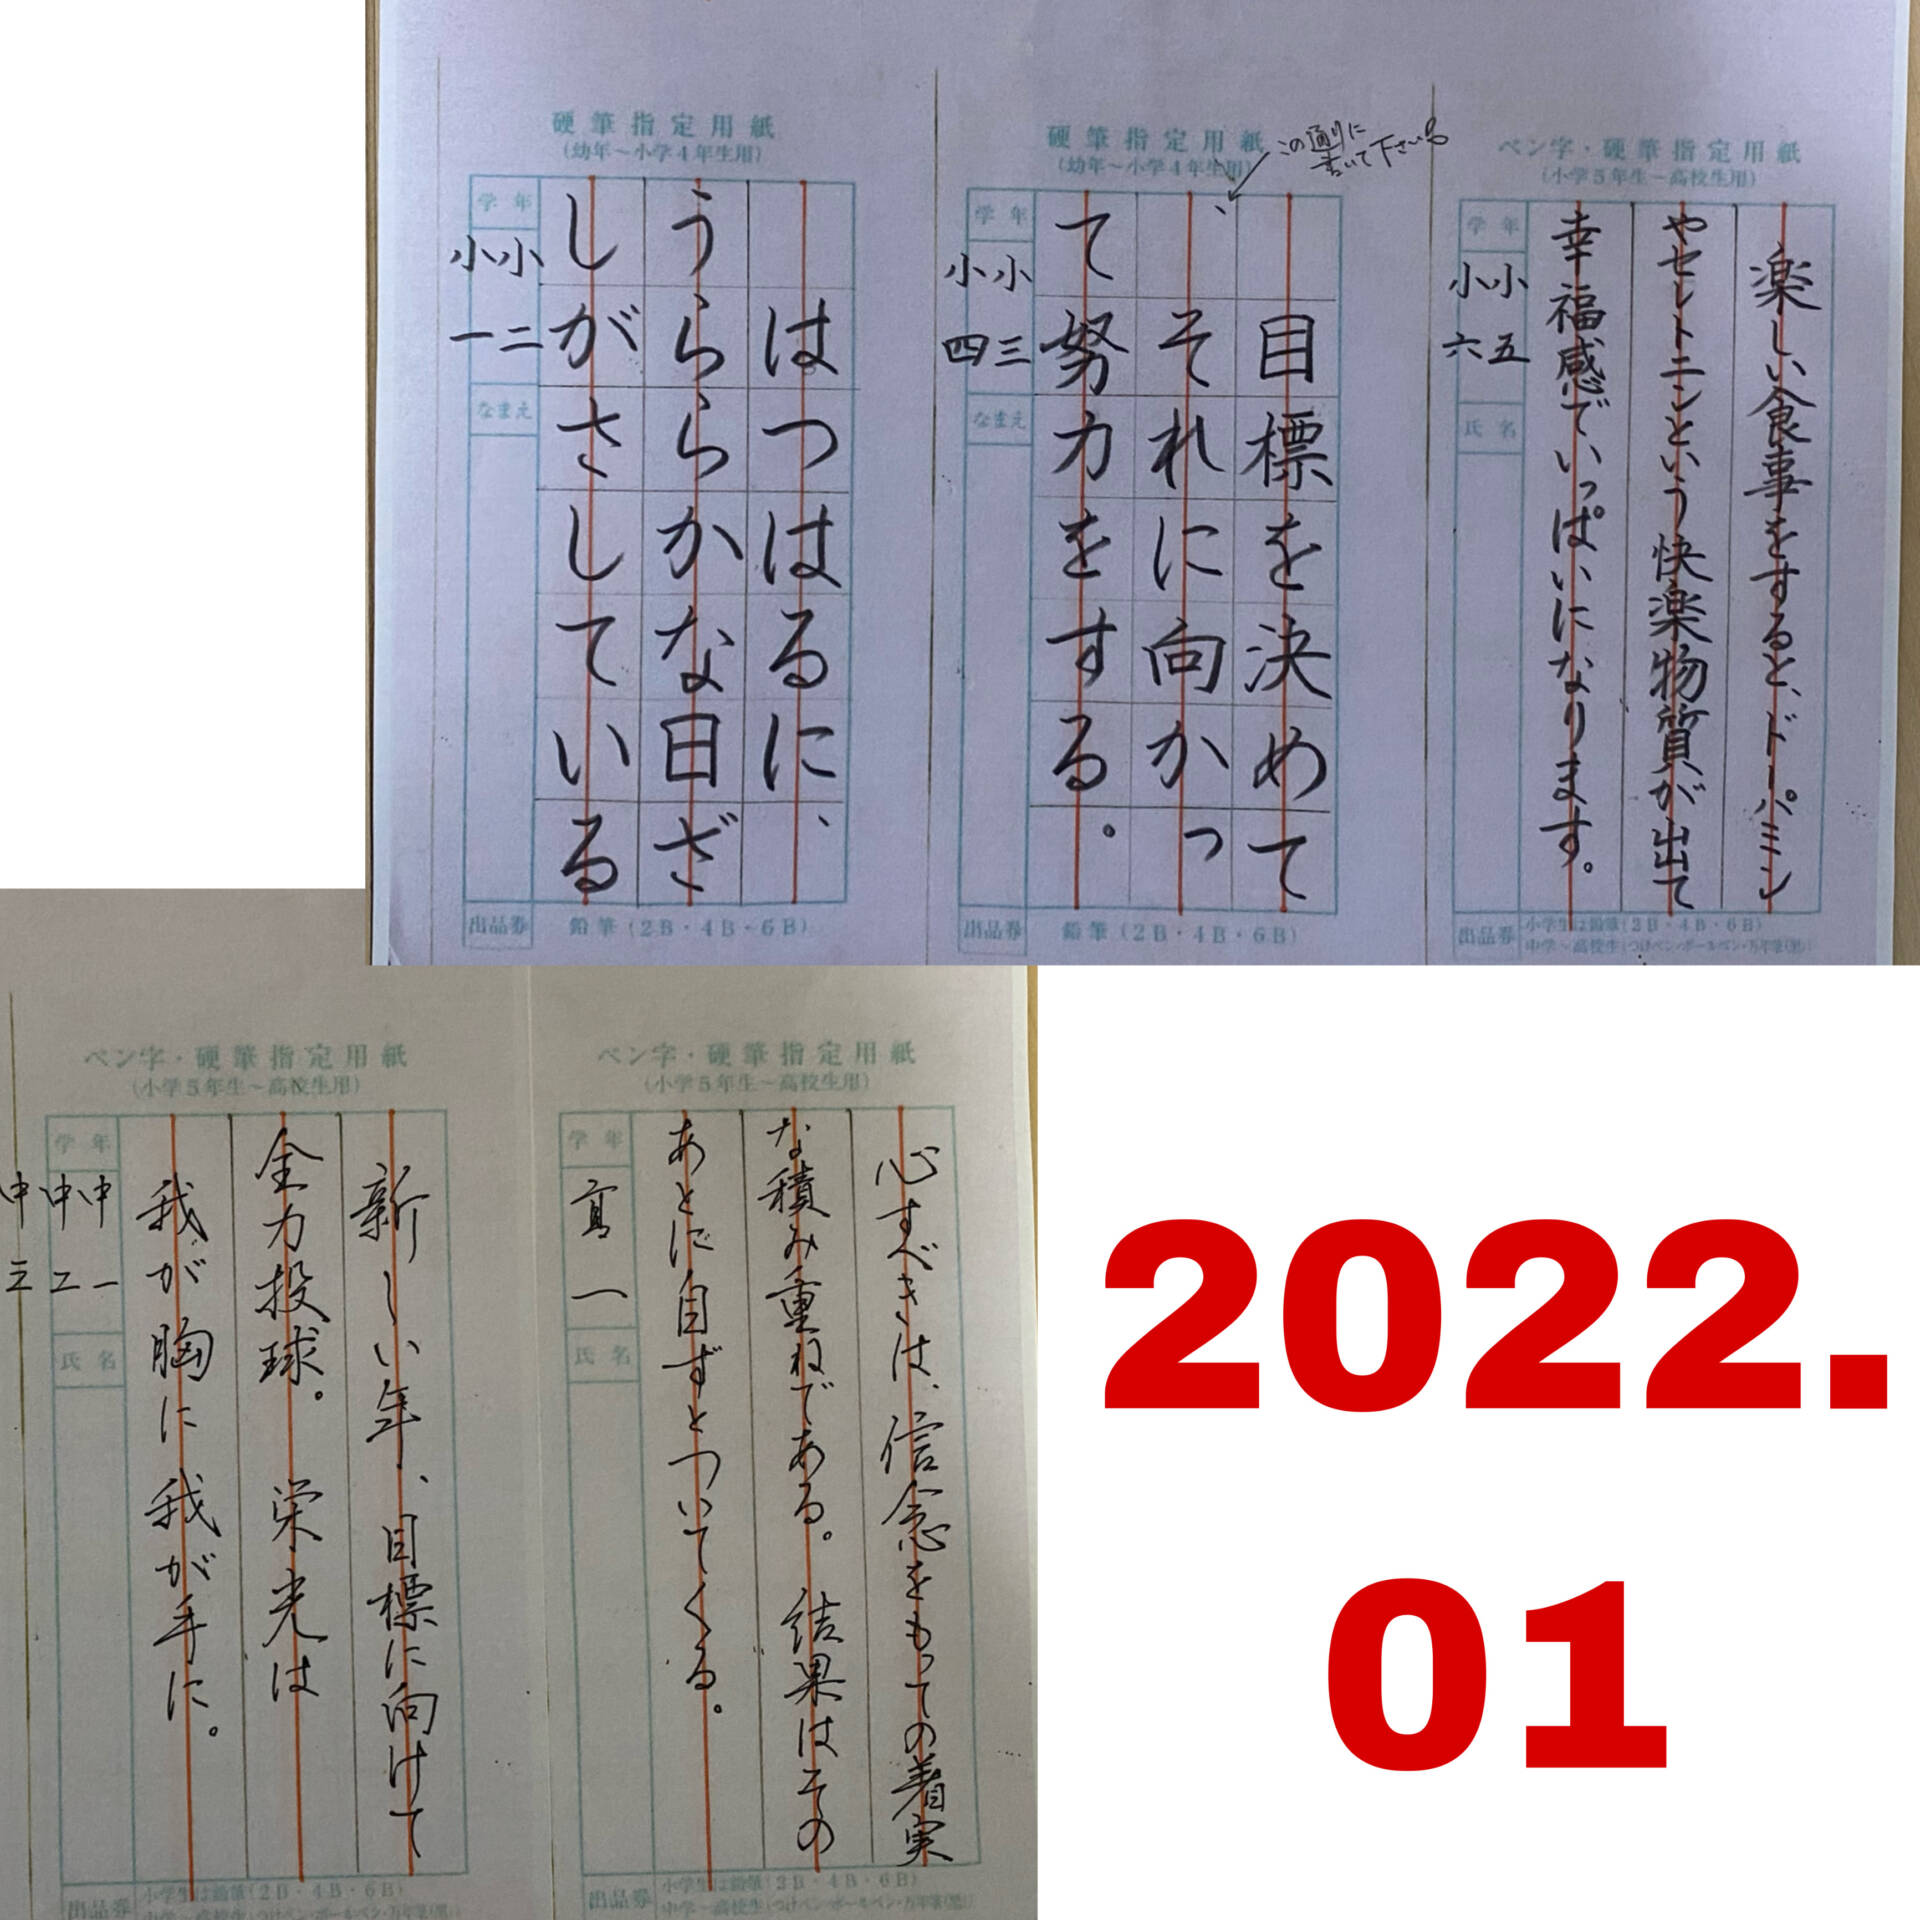 硬筆指定用紙
(幼年～小学4年生用)
はつはるに、
うららかな日ざ
しがさしている
学年
小二
小一
なまえ
出品券
鉛筆(2B・4B・6B)
硬筆指定用紙
(幼年～小学4年生用)
この通りに
書いて下さい
目標を決めて
、それに向かっ
て努力をする。
学年
小三
小四
なまえ
出品券
鉛筆(2B・4B・6B)
ペン字・硬筆指定用紙
(小学5年生～高校生用)
楽しい食事をすると、ドーパミン
やセレトニンという快楽物質が出て
幸福感でいっぱいになります。
学年
小五
小六
氏名
出品券
小学生は鉛筆(2B・4B・6B)
中学～高校生(つけペン・ボールペン・万年筆(黒))
ペン字・硬筆指定用紙
(小学5年生～高校生用)
新しい年、目標に向けて
全力投球。栄光は
我が胸に我が手に。
学年
中一
中二
中三
氏名
出品券
小学生は鉛筆(2B・4B・6B)
中学～高校生(つけペン・ボールペン・万年筆(黒))
ペン字・硬筆指定用紙
(小学5年生～高校生用)
心すべきは、信念をもっての着実
な積み重ねである。結果はその
あとに自ずとついてくる。
学年
高一
氏名
出品券
小学生は鉛筆(2B・4B・6B)
中学～高校生(つけペン・ボールペン・万年筆(黒))
2022.
01